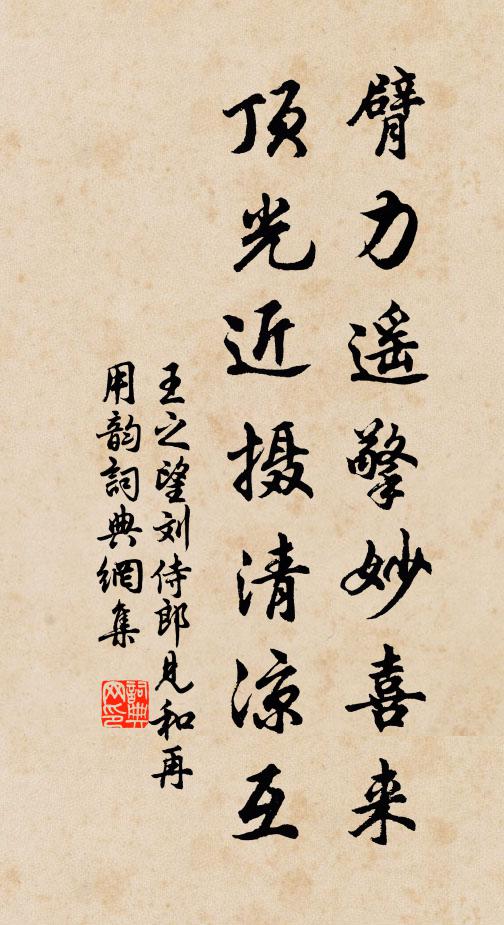 臂力遥擎妙喜来
顶光近摄清凉互
王之望刘侍郎见和再
用韵詞典網集
詞典
网印